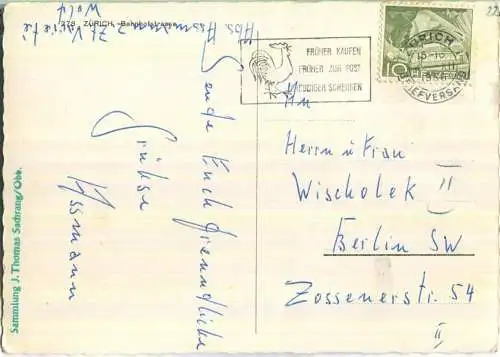 278. ZÜRICH, Bahnhofstrasse
Abs. Assmann z. Zt. Zürich
Wald
Sende Euch freundliche
Grüße
Assmann
Sammlung J. Thomas Sachrang/Obb.
FRÜHER KAUFEN
FRÜHER ZUR POST
FREUDIGER SCHENKEN
ZÜRICH
BRIEFVERSAND
10
22
An
Herrn u Frau
Wischolek
Berlin SW
Zossenerstr. 54
II